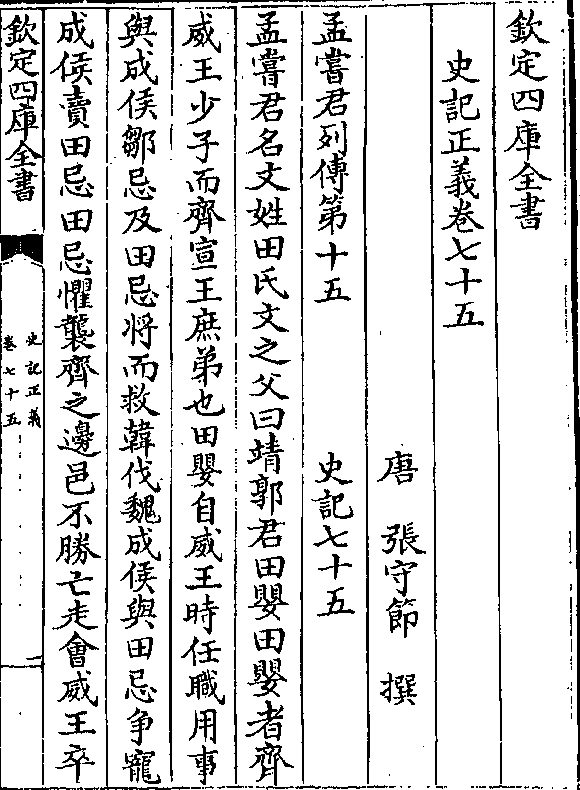 欽定四庫全書
史記正義卷七十五
唐　張守節　撰
孟嘗君列傳第十五　史記七十五
孟嘗君名文姓田氏文之父曰靖郭君田嬰田嬰者齊
威王少子而齊宣王庶弟也田嬰自威王時任職用事
與成侯鄒忌及田忌將而救韓伐魏成侯與田忌爭寵
成侯賣田忌田忌懼襲齊之邊邑不勝亡走會威王卒
欽定四庫全書
史記正義
卷七十五
一